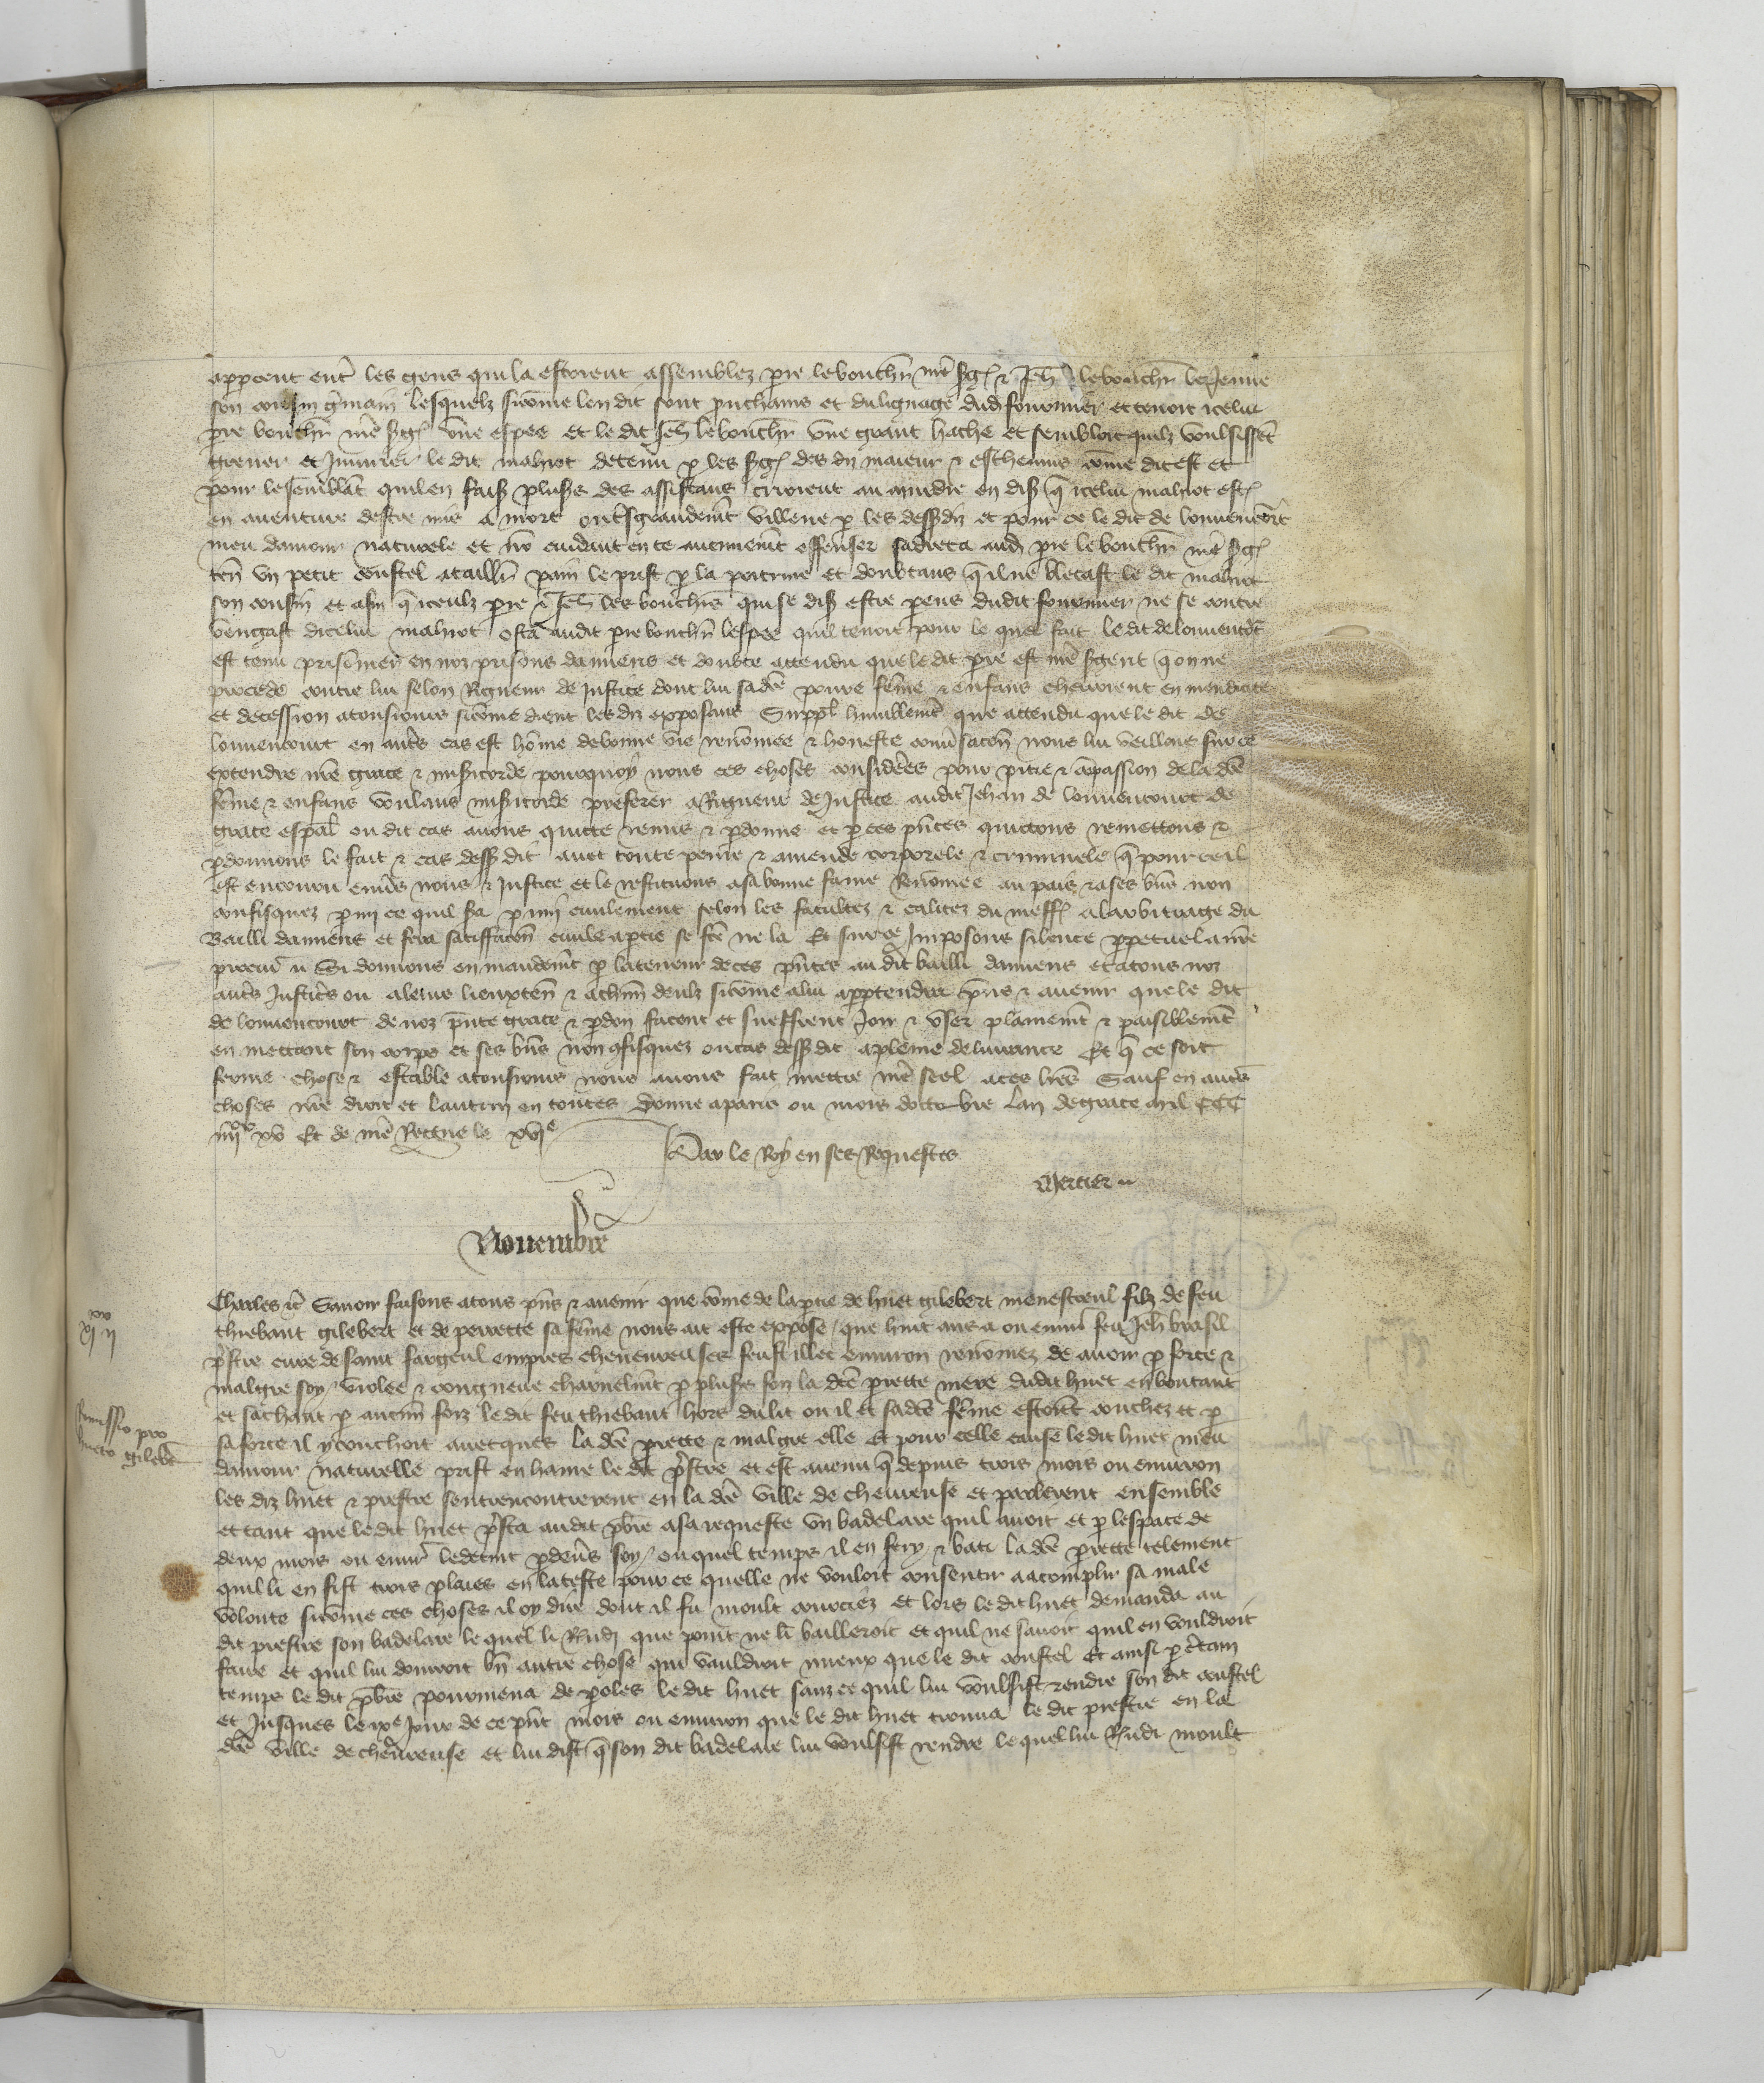 apperceut entre les gens qui la estoient assemblez pre le bouchr nre sgt & Jeh le bouchr le Jeune
son cousin gmain lesquelz sicome len dit sont prochains et du lignage dud founnier et tenoit icelui
pre bouchr nre sgt une espee et le dit Jeh le bouchr une grant hache et sembloit quilz voulsissent
grever et Iniurier le dit malnot detenu p les sgt des diz maieur & eschevins come dit est et
pour le semblat quil en fais plus des assistans crioient au murdre en dis q icelui malnot est
en aventure destre mis a mort oultsgeudemt villene p les dess diz et pour ce le dit de louvencort
meu damour naturele et no cuidant en ce aucunemt offenser sadreca aud pre le bouchr nre sgt
ten un petit coustel a taillr pain le prist p la poitrine et doubtans q il ne blecast le dit malnot
son cousin et afin q iceulz pre & Jeh les bouchers qui se dis estre pens dudit founnier ne se contre
vengast dicelui malnot osta audit pre bouchr lespee quil tenoit pour le quel fait le dit de louvencort
est tenu prisonier en noz prisons damiens et doubte attendu que le dit pre est nre sgent q on ne
procede contre lui selon Rigueur de Justice dont lui sa dce povre feme & enfans cherroient en mendicite
et decession a tousjours sicome dient les diz exposans Suppl humblemt que attendu que le dit de
louvencourt en autres cas est home de bonne vie renomee & honeste convsacon nous lui veillons sur ce
extendre nre grace & misicorde pourquoy nous ces choses considerees pour pitie & copassion de la dce
feme & enfans voulans misicorde preferer a Rigueur de Justice audit Jehan de louvencourt de
grace espal ou dit cas avons quicte remis & pdonne et p ces pntes quictons remettons &
pdonnons le fait & cas dess dit avec toute peine & amende corporele & criminele q pour ce il
est encouru envs nous & Justice et le restituons a sa bonne fame Renomee au pais & a ses bns non
confisquez pmi ce quil sa puni civilement selon les facultez & calitez du meff a larbitrage du
Bailli damiens et fera satiffacon civile a ptie se fce ne la Et sur ce Imposons silence ppetuel a nre
procur Si donnons en mandemt p la teneur de ces pntes au dit bailli damiens et a tous noz
auts Justics ou a leurs lieuxten & a chun deulz sicome a lui apptendra pns & avenir que le dit
de louvencourt de noz pnte grace & pdon facent et sueffrent Joir & user plainemt & paisiblemt
en mettant son corps et ses bns non cfisquez ou cas dess dit a pleine delivrance Et q ce soit
ferme chose & estable a tousjours nous avons fait mettre nre seel a ces lres Sauf en auts
choses nre droit et lautrui en toutes Donne a paris ou mois doctobre lan de grace mil CCC
iiiixx xv Et de nre Regne le xvie
Par le Roy en ses Requestes
Mercier
Novembre
Charles etc Savoir faisons a tous pns & avenir que come de la ptie de huet gilebert menestreul filz de feu
thiebaut gilebert et de perrette sa feme nous ait este expose que huit ans a ou envir feu Jeh brasil
pstre cure de saint fargeul empres chevreuse feust illec environ renomez de avoir p force &
malgre soy violee & congneue charnelmt p plus foiz la dce prette mere dudit huet en boutant
et sachant p aucun foiz le dit feu thiebaut hors du lit ou il et sa dce feme estoient couchez et p
sa force il y couchoit avecques la dce prette & malgre elle Et pour celle cause le dit huet meu
damour naturelle prist en haine le dit pstre et est avenu q depuis trois mois ou environ
les diz huet & prestre sentrencontrerent en la dce ville de chevreuse et parlerent ensemble
et tant que le dit huet psta audit pbre a sa requeste un badelare quil avoit et p lespace de
deux mois ou envir le detint pdevs soy ouquel temps il en fery & bati la dce prette telement
quil li en fist trois plaies en la teste pour ce quelle ne vouloit consentir a acomplir sa male
volonte sicome ces choses il oy dire dont il fu moult courciez et lors le dit huet demanda au
dit prestre son badelare le quel li Rndi que point ne li bailleroit et quil ne savoit quil en vouldroit
faire et quil lui donrroit un autre chose qui vauldroit mieux que le dit coustel Et ainsi p ctain
temps le dit pbre pourmena de poles le dit huet sanz ce quil lui voulsist rendre son dit coustel
et Jusques le ixe Jour de ce pnt mois ou environ que le dit huet trouva le dit prestre en la
dce ville de chevreuse et lui dist q son dit badelare lui voulsist rendre le quel lui Rndi moult
xv
xj ij
Remissio pro
hueto gilebt